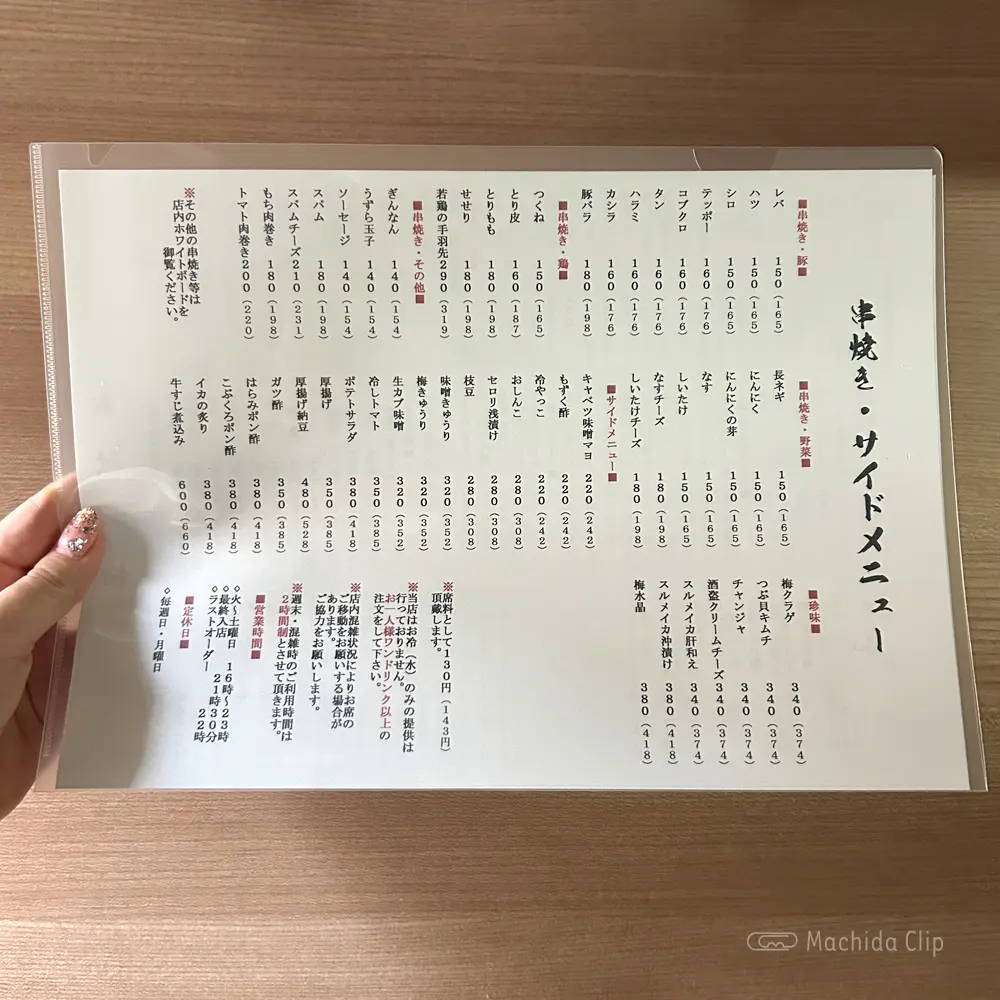 串焼き・サイドメニュー
■串焼き・豚■
レバ 150(165)
ハツ 150(165)
シロ 150(165)
テッポー 160(176)
コブクロ 160(176)
タン 160(176)
ハラミ 160(176)
カシラ 160(176)
豚バラ 180(198)
■串焼き・鶏■
つくね 150(165)
とり皮 160(187)
とりもも 180(198)
せせり 180(198)
若鶏の手羽先 290(319)
■串焼き・その他■
ぎんなん 140(154)
うずら玉子 140(154)
ソーセージ 140(154)
スパム 180(198)
スパムチーズ 210(231)
もち肉巻き 180(198)
トマト肉巻き 200(220)
※その他の串焼き等は
店内ホワイトボードを
御覧ください。
■串焼き・野菜■
長ネギ 150(165)
にんにく 150(165)
にんにくの芽 150(165)
なす 150(165)
しいたけ 150(165)
なすチーズ 180(198)
しいたけチーズ 180(198)
■サイドメニュー■
キャベツ味噌マヨ 220(242)
もずく酢 220(242)
冷やっこ 220(242)
おしんこ 280(308)
セロリ浅漬け 280(308)
枝豆 280(308)
味噌きゅうり 320(352)
梅きゅうり 320(352)
生カブ味噌 320(352)
冷しトマト 350(385)
ポテトサラダ 380(418)
厚揚げ 350(385)
厚揚げ納豆 480(528)
ガツ酢 350(385)
はらみポン酢 380(418)
こぶくろポン酢 380(418)
イカの炙り 380(418)
牛すじ煮込み 600(660)
■珍味■
梅クラゲ 340(374)
つぶ貝キムチ 340(374)
チャンジャ 340(374)
酒盗クリームチーズ 340(374)
スルメイカ肝和え 340(374)
スルメイカ沖漬け 380(418)
梅水晶 380(418)
※席料として130円(143円)
頂戴します。
※当店はお冷(水)のみの提供は
行っておりません。
お一人様ワンドリンク以上の
注文をして下さい。
※店内混雑状況によりお席の
ご移動をお願いする場合が
あります。
ご協力をお願いします。
※週末・混雑時のご利用時間は
2時間制とさせて頂きます。
■営業時間■
◇火～土曜日 16時～23時
◇最終入店 22時
◇ラストオーダー 21時30分
■定休日■
◇毎週日・月曜日
Machida Clip